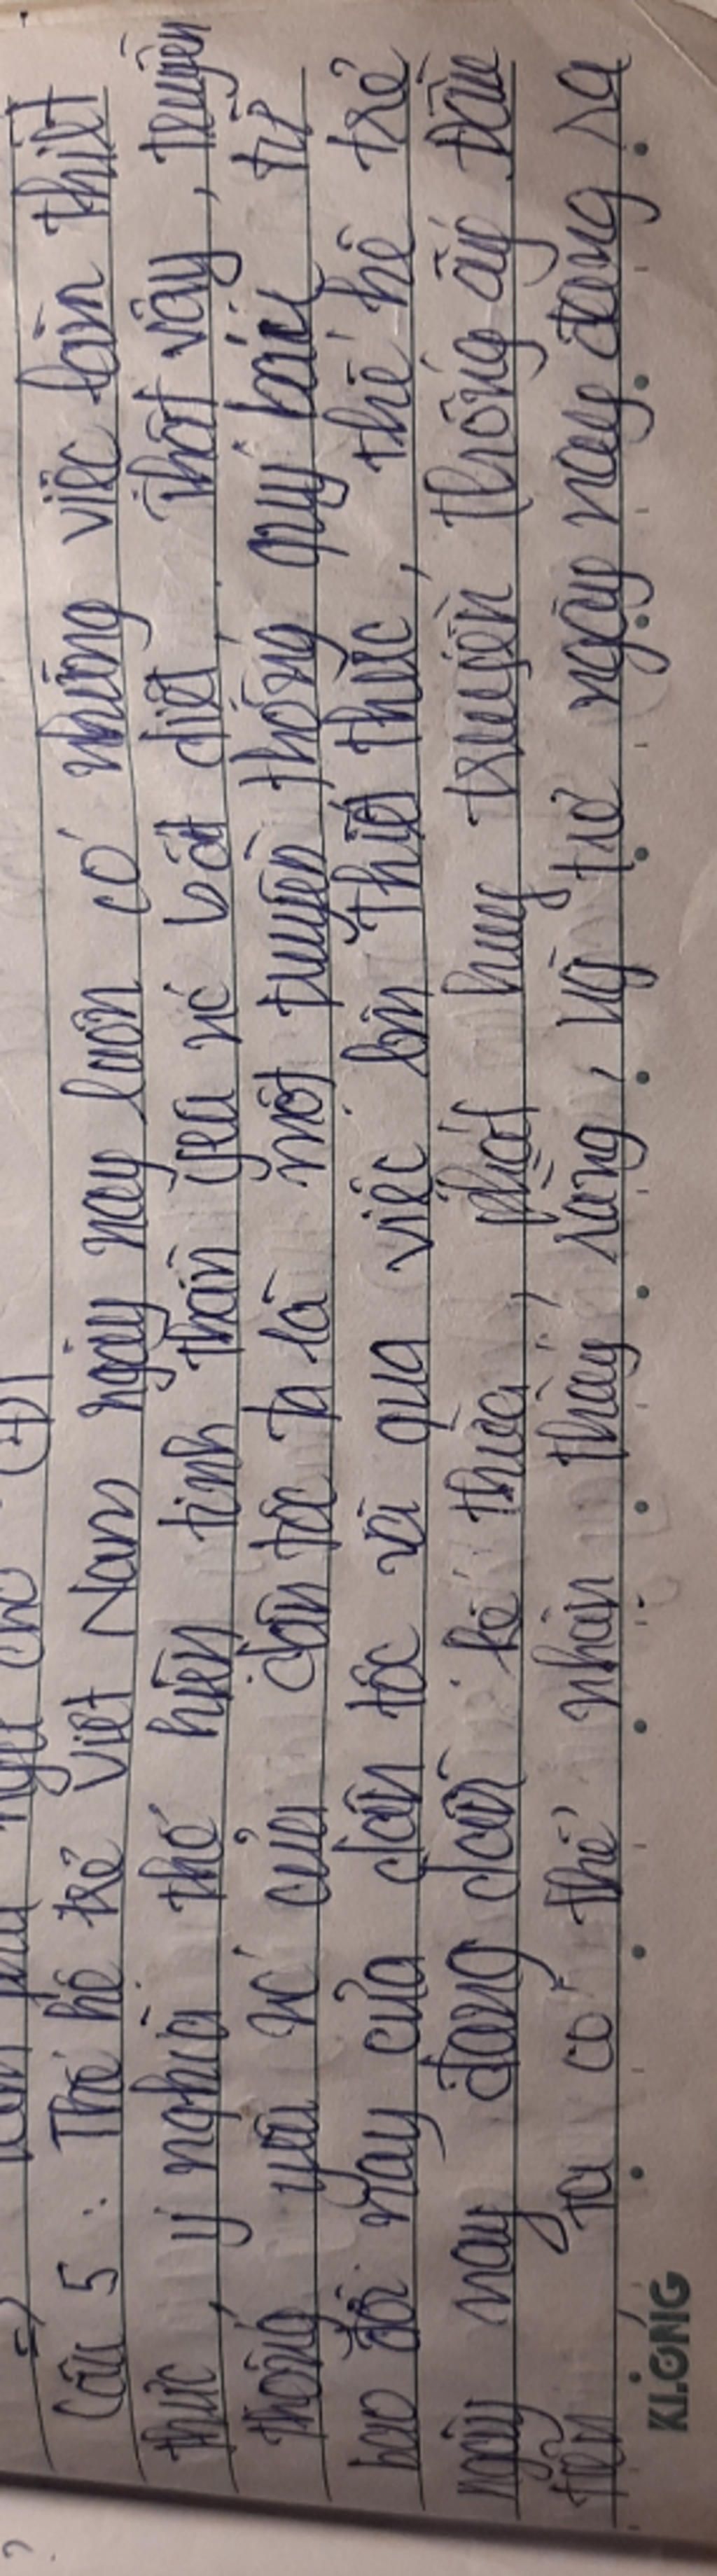 Câu 5 : Thế hệ trẻ Việt Nam ngày nay luôn có những việc làm thiết
thực, ý nghĩa thể hiện tinh thần yêu nc bất diệt. Thật vậy, truyền
thống yêu nc của dân tộc ta là một truyền thống quý báu từ
bao đời nay của dân tộc và qua việc làm thiết thực, thế hệ trẻ
ngày nay đang dần kế thừa, phát huy truyền thống ấy. Đầu
tiên ta có thể nhận thấy rằng, giới trẻ ngày nay đang ra
KLONG